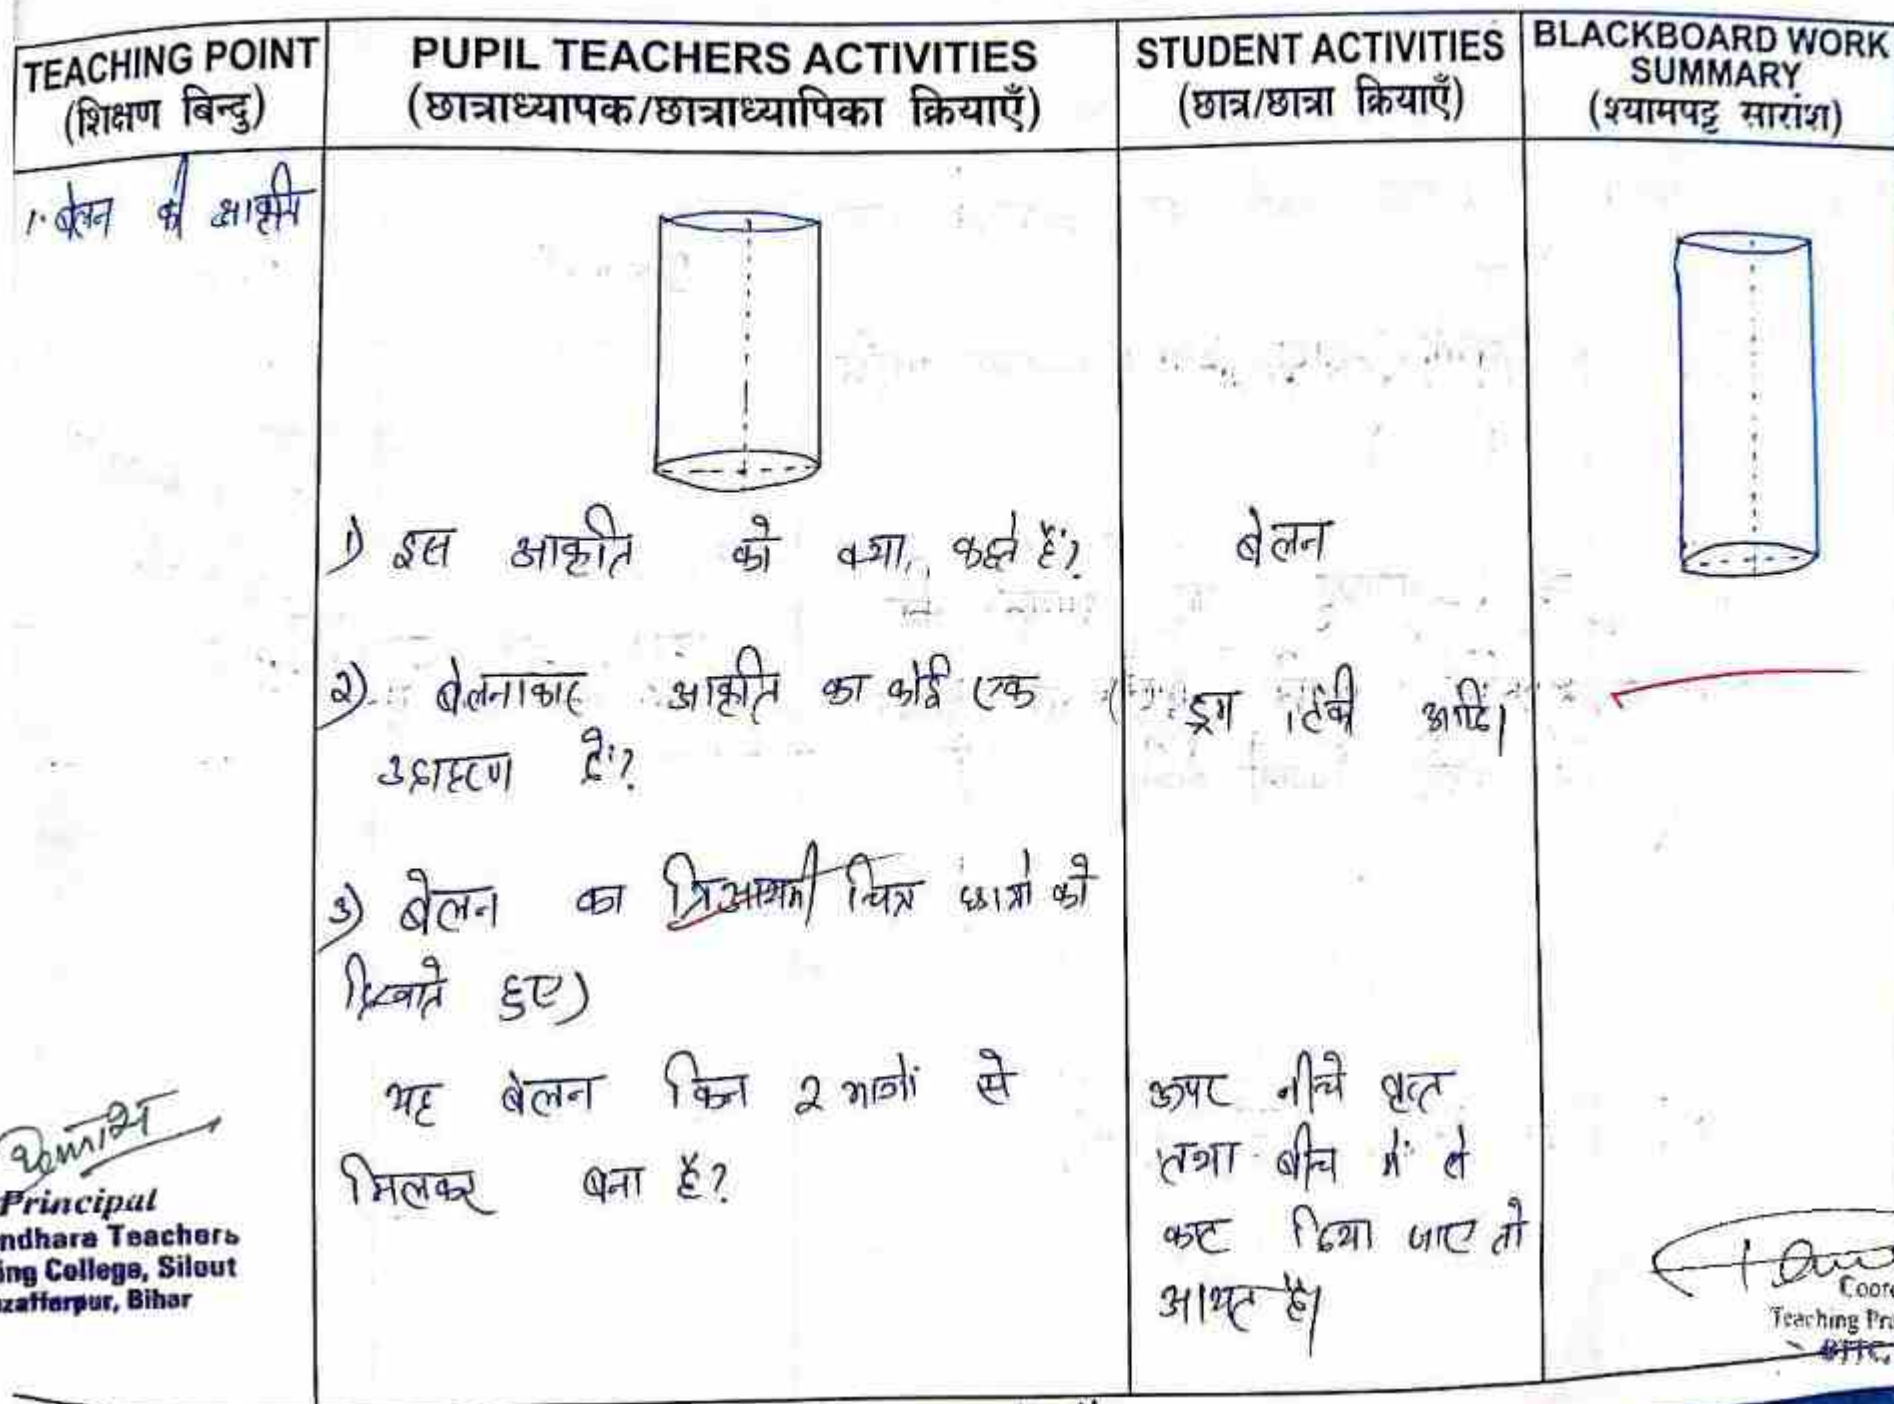 TEACHING POINT
(शिक्षण बिन्दु)
PUPIL TEACHERS ACTIVITIES
(छात्राध्यापक/छात्राध्यापिका क्रियाएँ)
STUDENT ACTIVITIES
(छात्र/छात्रा क्रियाएँ)
BLACKBOARD WORK
SUMMARY
(श्यामपट्ट सारांश)
1. बेलन की आकृति
1) इस आकृति को क्या कहते हैं?
बेलन
2) बेलनाकार आकृति का कोई एक
उदाहरण दें?
ड्रम, टंकी आदि।
3) बेलन का त्रिआयामी चित्र छात्रों को
दिखाते हुए)
यह बेलन किन 2 भागों से
मिलकर बना है?
ऊपर नीचे वृत्त
तथा बीच में से
काट दिया जाए तो
आयत है।
Principal
ndhara Teachers
ing College, Silout
zafferpur, Bihar
Coor
Teaching Pr